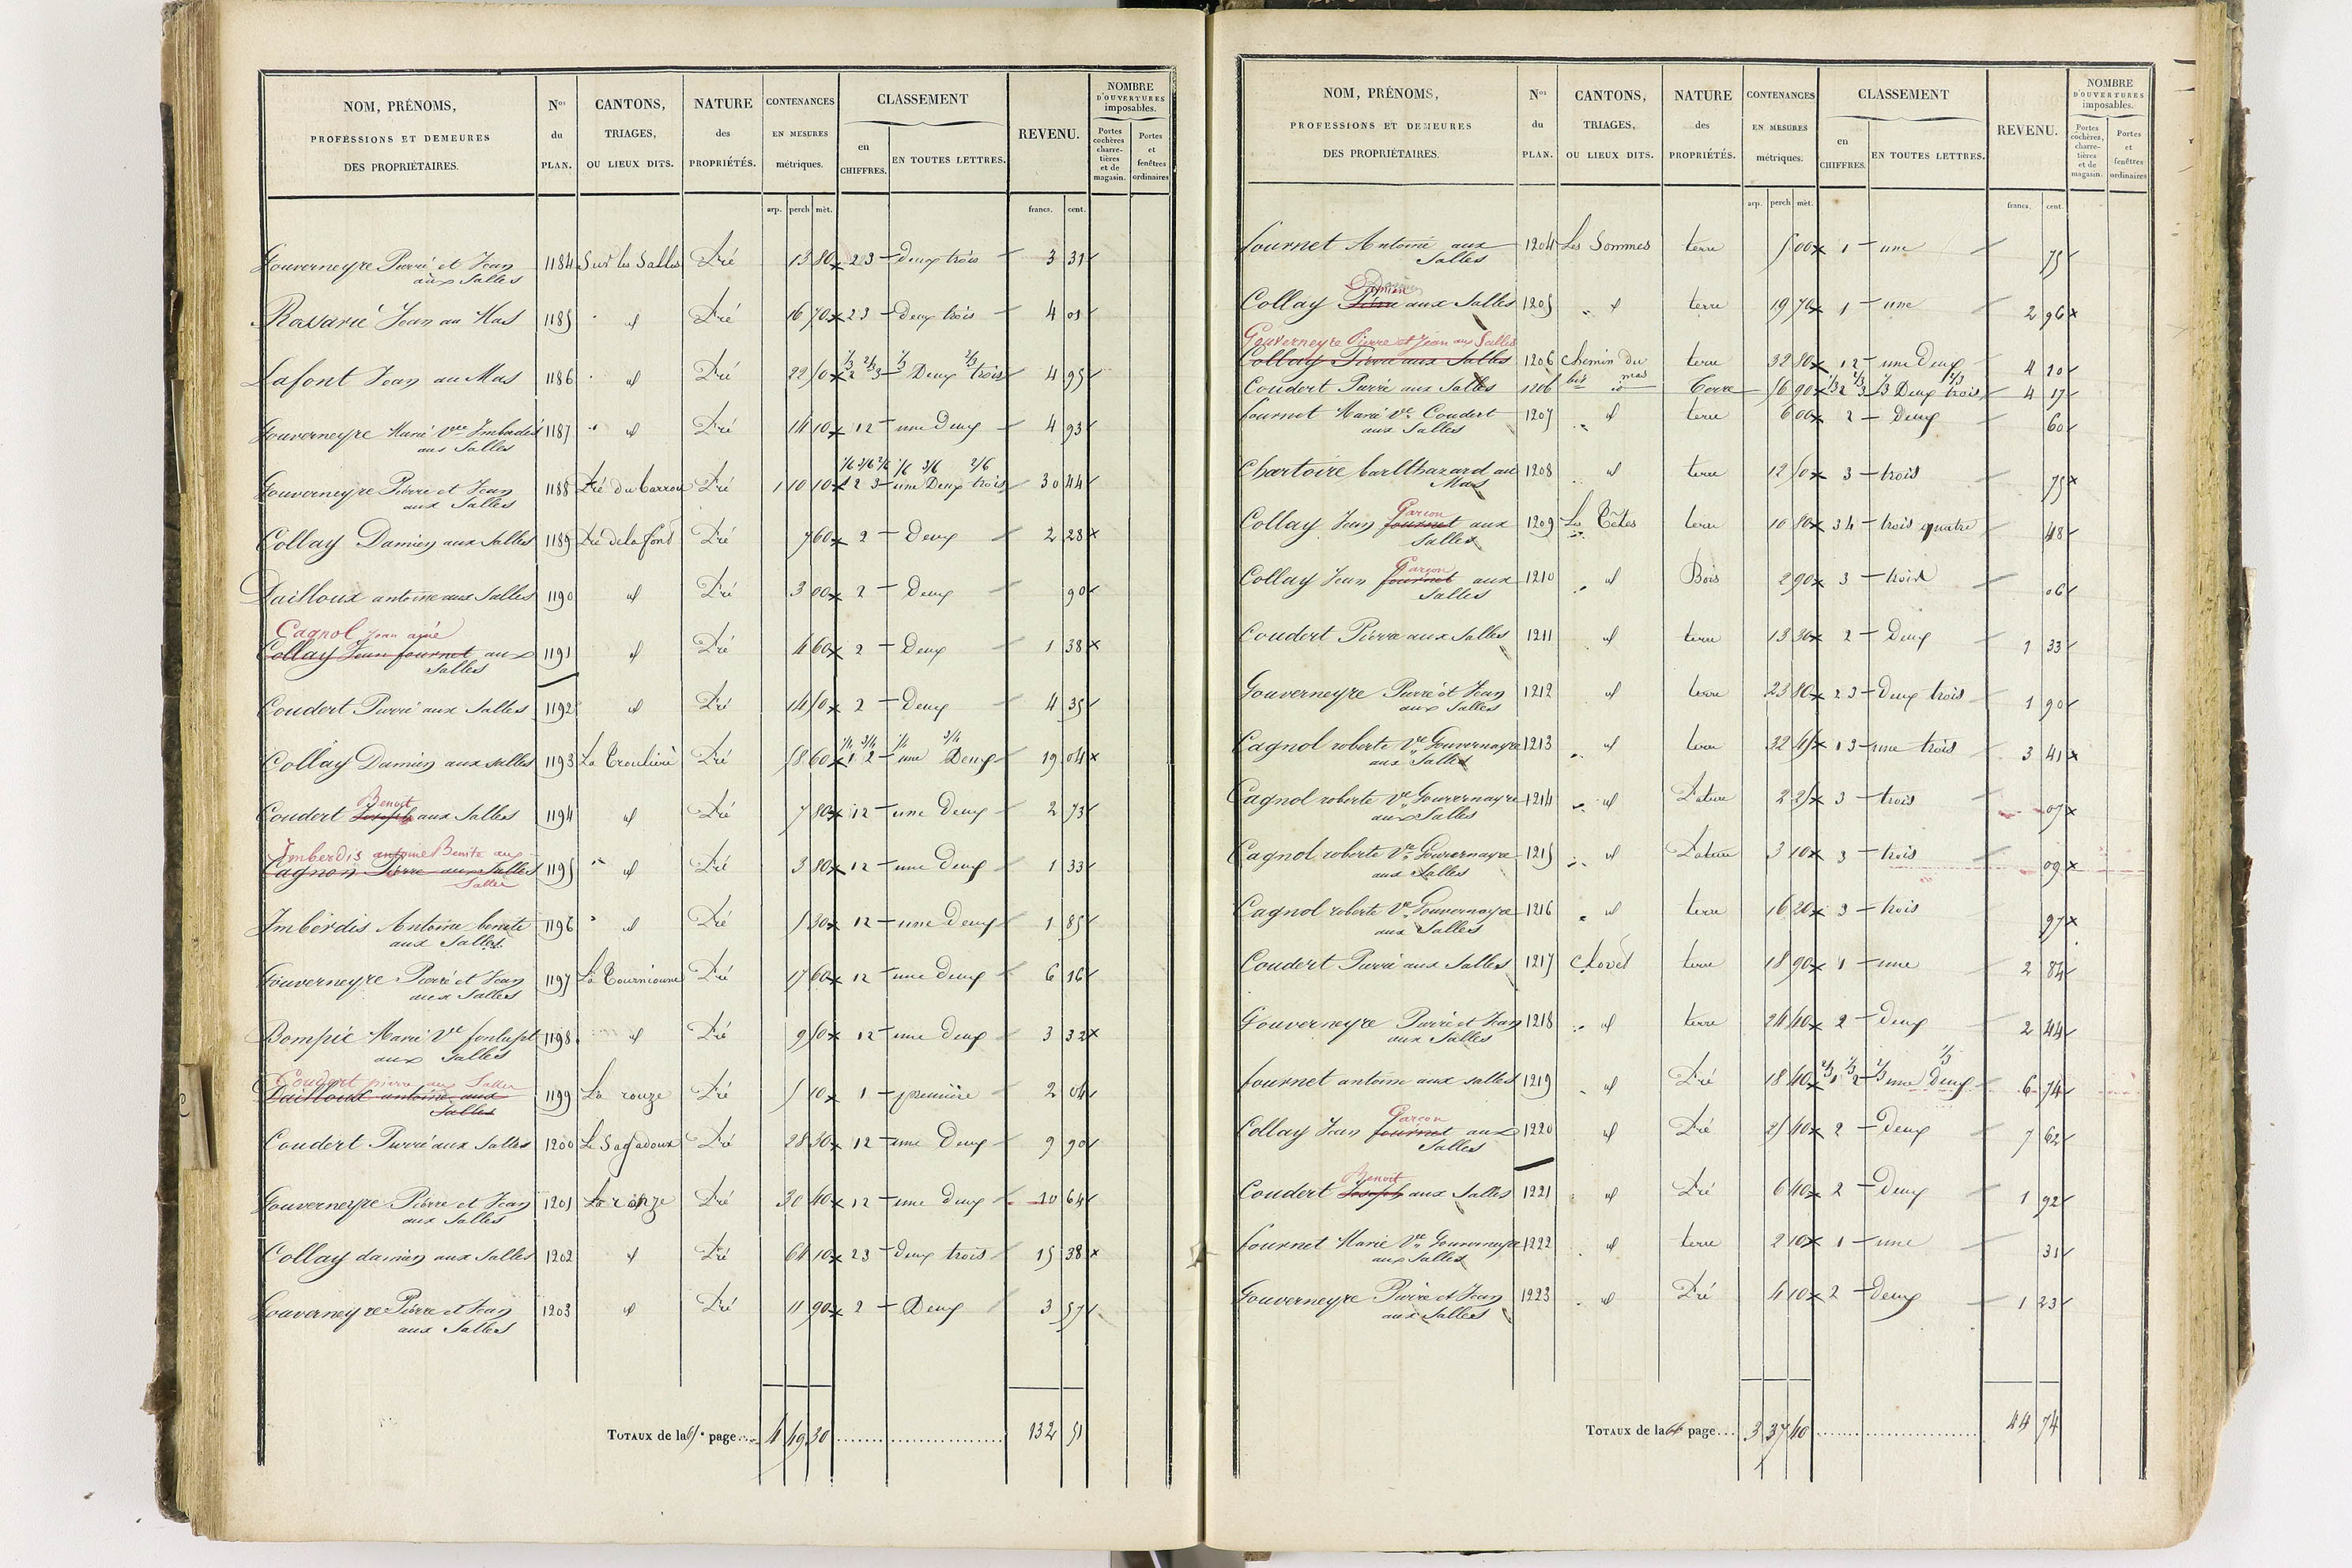 NOM, PRÉNOMS, PROFESSIONS ET DEMEURES DES PROPRIÉTAIRES. Nos du PLAN. CANTONS, TRIAGES, OU LIEUX DITS. NATURE des PROPRIÉTÉS. CONTENANCES EN MESURES métriques. CLASSEMENT en CHIFFRES. EN TOUTES LETTRES. REVENU. NOMBRE D'OUVERTURES imposables. Portes cochères, charretières et de magasin. Portes et fenêtres ordinaires
arp. perch mèt. francs. cent.
Gouverneyre Pierre et Jean 1184 Sur les Salles Pré 13 80 2 3 Deux trois 3 31
aux Salles
Jean au Mas 1185 id Pré 16 70 2 3 Deux trois 4 01
1/3 2/3 1/3 2/3
Lafont Jean au Mas 1186 id Pré 22 50 2 3 Deux trois 4 95
Gouverneyre Marie Vve Imberdis 1187 id Pré 14 10 1 2 une Deux 4 93
aux Salles
1/6 3/6 2/6 1/6 3/6 2/6
Gouverneyre Pierre et Jean 1188 Pré du Carrou Pré 1 10 10 1 2 3 une Deux trois 30 44
aux Salles
Collay Damien aux Salles 1189 Pré de la font Pré 7 60 2 Deux 2 28
Dailloux antoine aux Salles 1190 id Pré 3 00 2 Deux 90
Cagnol Jean ainé
Collay Jean fournet aux 1191 id Pré 4 60 2 Deux 1 38
Salles
Coudert Pierre aux Salles 1192 id Pré 14 50 2 Deux 4 35
1/4 3/4 1/4 3/4
Collay Damien aux Salles 1193 La Pré 58 60 1 2 une Deux 19 04
Benoit
Coudert Joseph aux Salles 1194 id Pré 7 80 1 2 une Deux 2 73
Imberdis antoine Benite aux
Cagnon Pierre aux Salles 1195 id Pré 3 80 1 2 une Deux 1 33
Salles
Imberdis Antoine benite 1196 id Pré 5 30 1 2 une Deux 1 85
aux Salles
Gouverneyre Pierre et Jean 1197 La Pré 17 60 1 2 une deux 6 16
aux Salles
Bompic Marie Ve fonlupt 1198 id Pré 9 50 1 2 une deux 3 32
aux Salles
Coudert pierre aux Salles
Dailloux antoine aux 1199 La rouze Pré 5 10 1 première 2 04
Salles
Coudert Pierre aux Salles 1200 Le Sagadoux Pré 28 30 1 2 une Deux 9 90
Gouverneyre Pierre et Jean 1201 La Pré 30 40 1 2 une deux 10 64
aux Salles
Collay damien aux Salles 1202 id Pré 64 10 2 3 deux trois 15 38
Gouverneyre Pierre et Jean 1203 id Pré 11 90 2 Deux 3 57
aux Salles
TOTAUX de la 65e page.... 4 49 30 132 51
NOM, PRÉNOMS, PROFESSIONS ET DEMEURES DES PROPRIÉTAIRES. Nos du PLAN. CANTONS, TRIAGES, OU LIEUX DITS. NATURE des PROPRIÉTÉS. CONTENANCES EN MESURES métriques. CLASSEMENT en CHIFFRES. EN TOUTES LETTRES. REVENU. NOMBRE D'OUVERTURES imposables. Portes cochères, charretières et de magasin. Portes et fenêtres ordinaires
arp. perch mèt. francs. cent.
fournet Antoine aux 1204 Les Sommes terre 5 00 1 une 75
Salles
Damien
Collay Pierre aux Salles 1205 id terre 19 70 1 une 2 96
Gouverneyre Pierre et Jean aux Salles
Collay Pierre aux Salles 1206 chemin du mas terre 32 80 1 2 une Deux 4 10
Coudert Pierre aux Salles 1206 bis id Terre 56 90 1/3 2 2/3 3 1/3 Deux 2/3 trois 4 17
fournet Marie Ve Coudert 1207 id terre 6 00 2 Deux 60
aux Salles
Chartoire barlthazard au 1208 id terre 12 50 3 trois 75
Mas
Garçon
Collay Jean fournet aux 1209 Les Têtes terre 10 80 3 4 trois quatre 48
Salles
Garçon
Collay Jean fournet aux 1210 id Bois 2 90 3 trois 06
Salles
Coudert Pierre aux Salles 1211 id terre 13 30 2 Deux 1 33
Gouverneyre Pierre et Jean 1212 id terre 23 80 2 3 Deux trois 1 90
aux Salles
Cagnol roberte Ve Gouverneyre 1213 id terre 32 45 1 3 une trois 3 41
aux Salles
Cagnol roberte Ve Gouverneyre 1214 id Pature 2 25 3 trois 07
aux Salles
Cagnol roberte Ve Gouverneyre 1215 id Pature 3 10 3 trois 09
aux Salles
Cagnol roberte Ve Gouverneyre 1216 id terre 16 20 3 trois 97
aux Salles
Coudert Pierre aux Salles 1217 Clovet terre 18 90 1 une 2 84
Gouverneyre Pierre et Jean 1218 id terre 24 40 2 Deux 2 44
aux Salles
fournet antoine aux salles 1219 id Pré 18 40 2/3 1 1/3 2 2/3 une 1/3 Deux 6 74
Garçon
Collay Jean fournet aux 1220 id Pré 25 40 2 Deux 7 62
Salles
Benoit
Coudert Joseph aux Salles 1221 id Pré 6 40 2 Deux 1 92
fournet Marie Ve Gouverneyre 1222 id terre 2 10 1 une 31
aux Salles
Gouverneyre Pierre et Jean 1223 id Pré 4 10 2 deux 1 23
aux Salles
TOTAUX de la 66 page.... 3 37 40 44 74